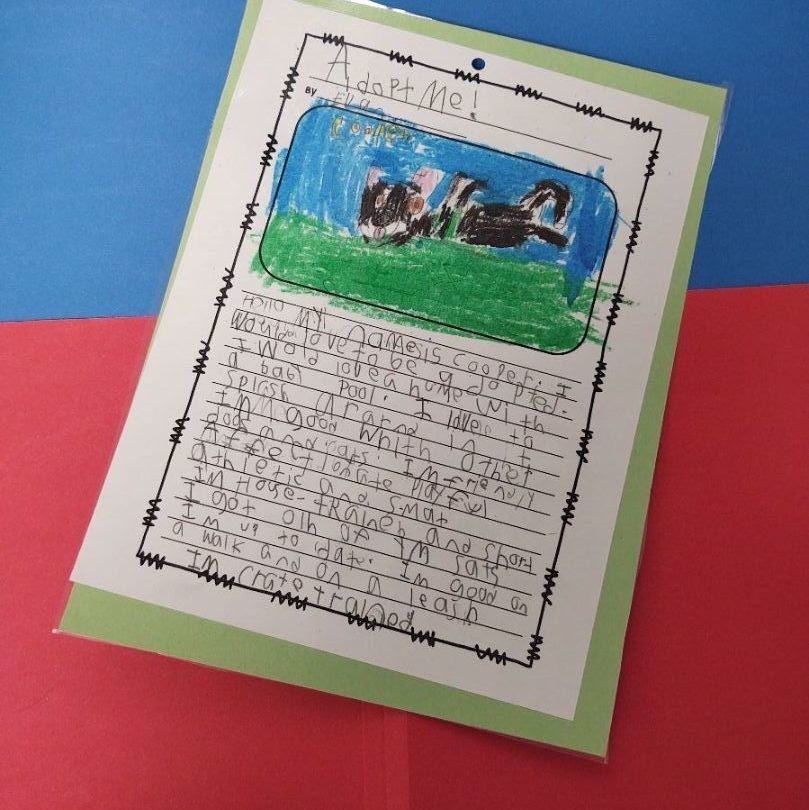 Adopt Me!
By Ella
Cooper
Hello My Name is Cooper. I
Would love to be adopted.
I Wold love a home With
a baby Pool. I love to
Splash Ararnd in it
IM good Whith other
dogs and cats. Im frendly
Affectionate Playful
athletic and Smat
IM House-trained and Short
I got olh of IM Sats
I'm up to date. Im good on
a walk and on a leash
Im crate trained